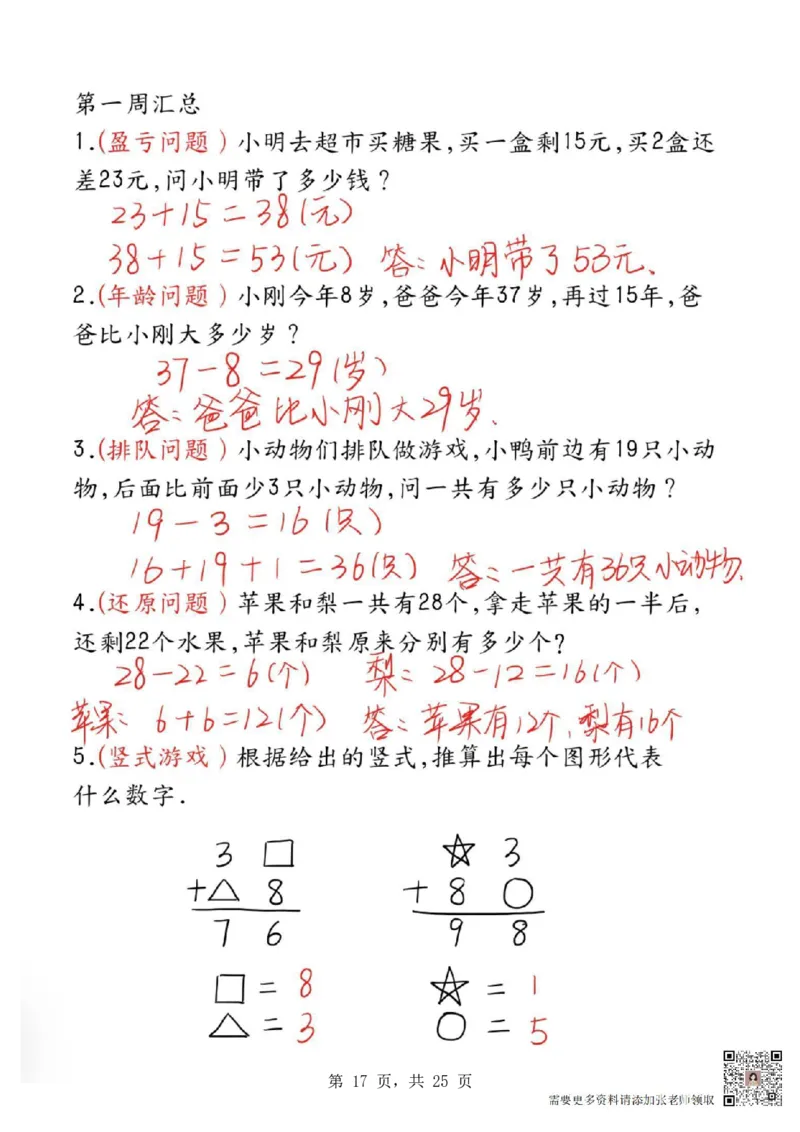 第一周汇总
1.(盈亏问题)小明去超市买糖果,买一盒剩15元,买2盒还
差23元,问小明带了多少钱?
23+15=38(元)
38+15=53(元) 答:小明带了53元.
2.(年龄问题)小刚今年8岁,爸爸今年37岁,再过15年,爸
爸比小刚大多少岁?
37-8=29(岁)
答:爸爸比小刚大29岁.
3.(排队问题)小动物们排队做游戏,小鸭前边有19只小动
物,后面比前面少3只小动物,问一共有多少只小动物?
19-3=16(只)
16+19+1=36(只) 答:一共有36只小动物.
4.(还原问题)苹果和梨一共有28个,拿走苹果的一半后,
还剩22个水果,苹果和梨原来分别有多少个?
28-22=6(个) 梨:28-12=16(个)
苹果:6+6=12(个) 答:苹果有12个,梨有16个
5.(竖式游戏)根据给出的竖式,推算出每个图形代表
什么数字.
3 □ ☆ 3
+△ 8 + 8 ○
7 6 9 8
□=8 ☆=1
△=3 ○=5
第 17 页，共 25 页
需要更多资料请添加张老师领取